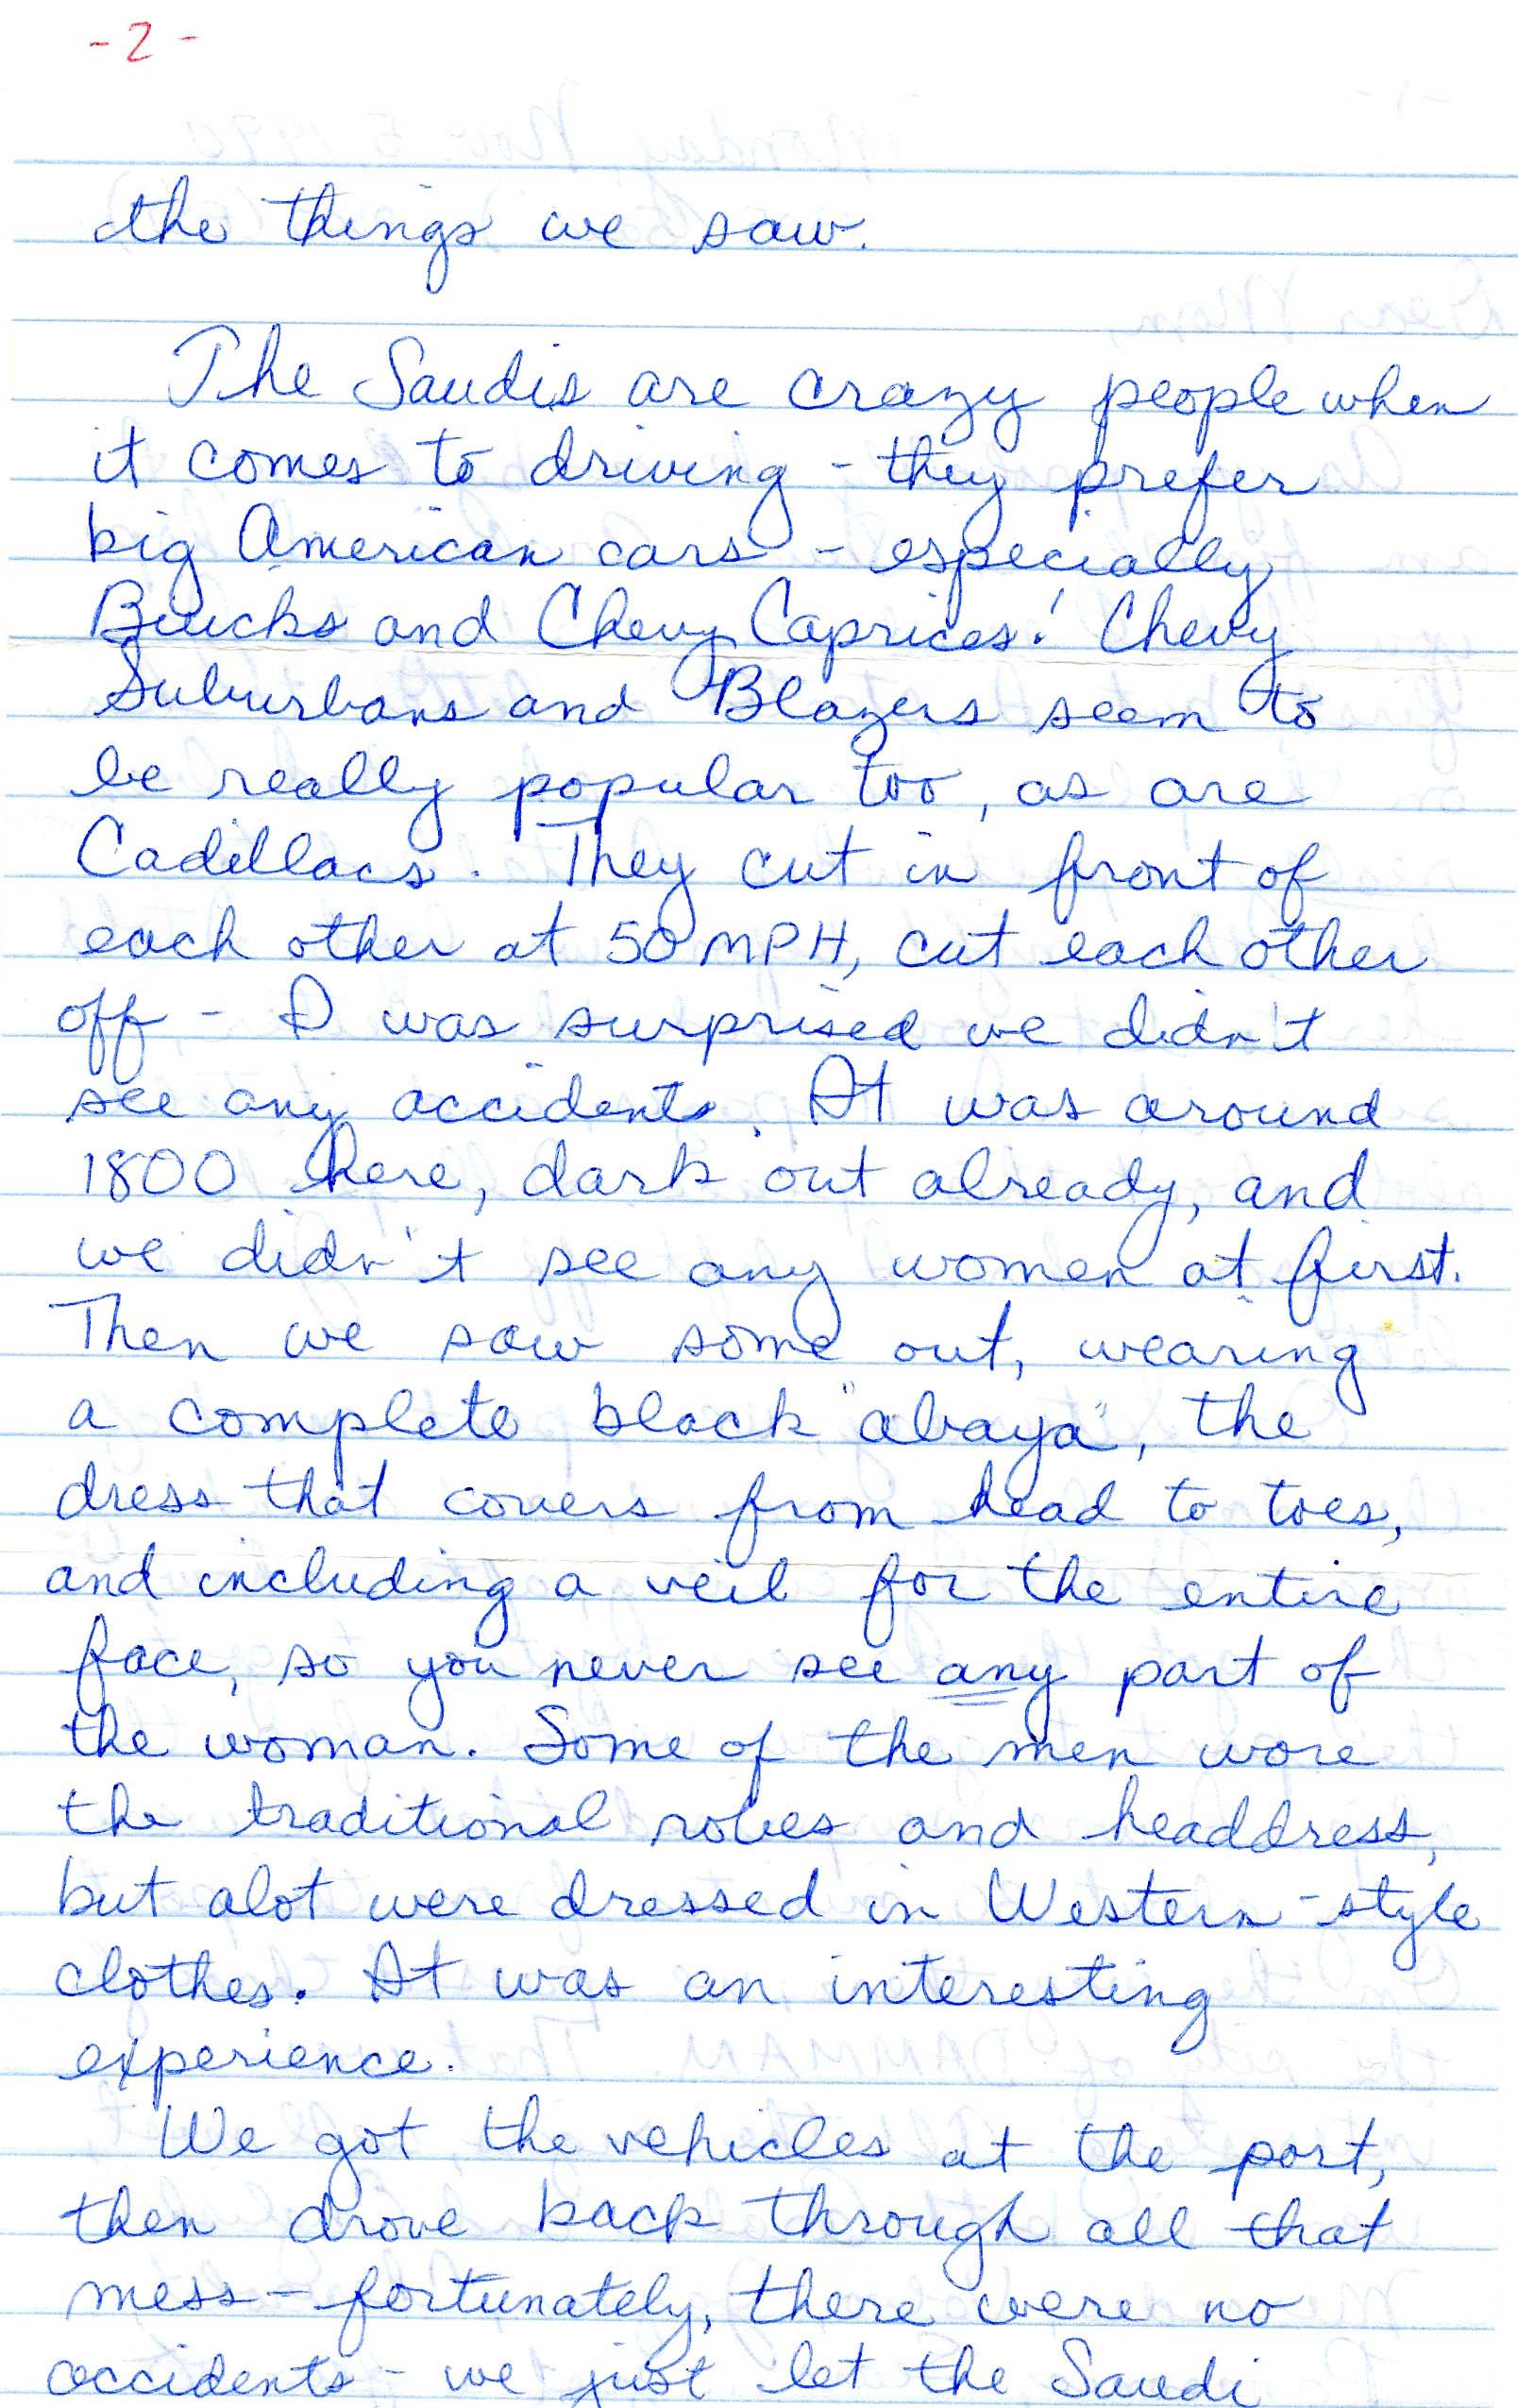 - 2 -
the things we saw.
The Saudis are crazy people when
it comes to driving - they prefer
big American cars - especially
Buicks and Chevy Caprices! Chevy
Suburbans and Blazers seem to
be really popular too, as are
Cadillacs. They cut in front of
each other at 50 MPH, cut each other
off - I was surprised we didn't
see any accidents. It was around
1800 here, dark out already, and
we didn't see any women at first.
Then we saw some out, wearing
a complete black "abaya", the
dress that covers from head to toes,
and including a veil for the entire
face, so you never see any part of
the woman. Some of the men wore
the traditional robes and headdress,
but alot were dressed in Western-style
clothes. It was an interesting
experience.
We got the vehicles at the port,
then drove back through all that
mess - fortunately, there were no
accidents - we just let the Saudi